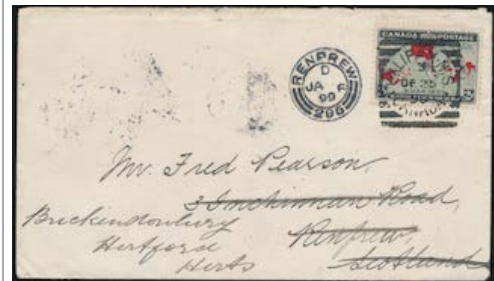 CANADA POSTAGE
RENFREW
D
JA 6
99
296
DE 25
CANADA
Mr. Fred Pearson,
3 Inchinnan Road,
Renfrew,
Scotland
Brickendonbury
Hertford
Herts